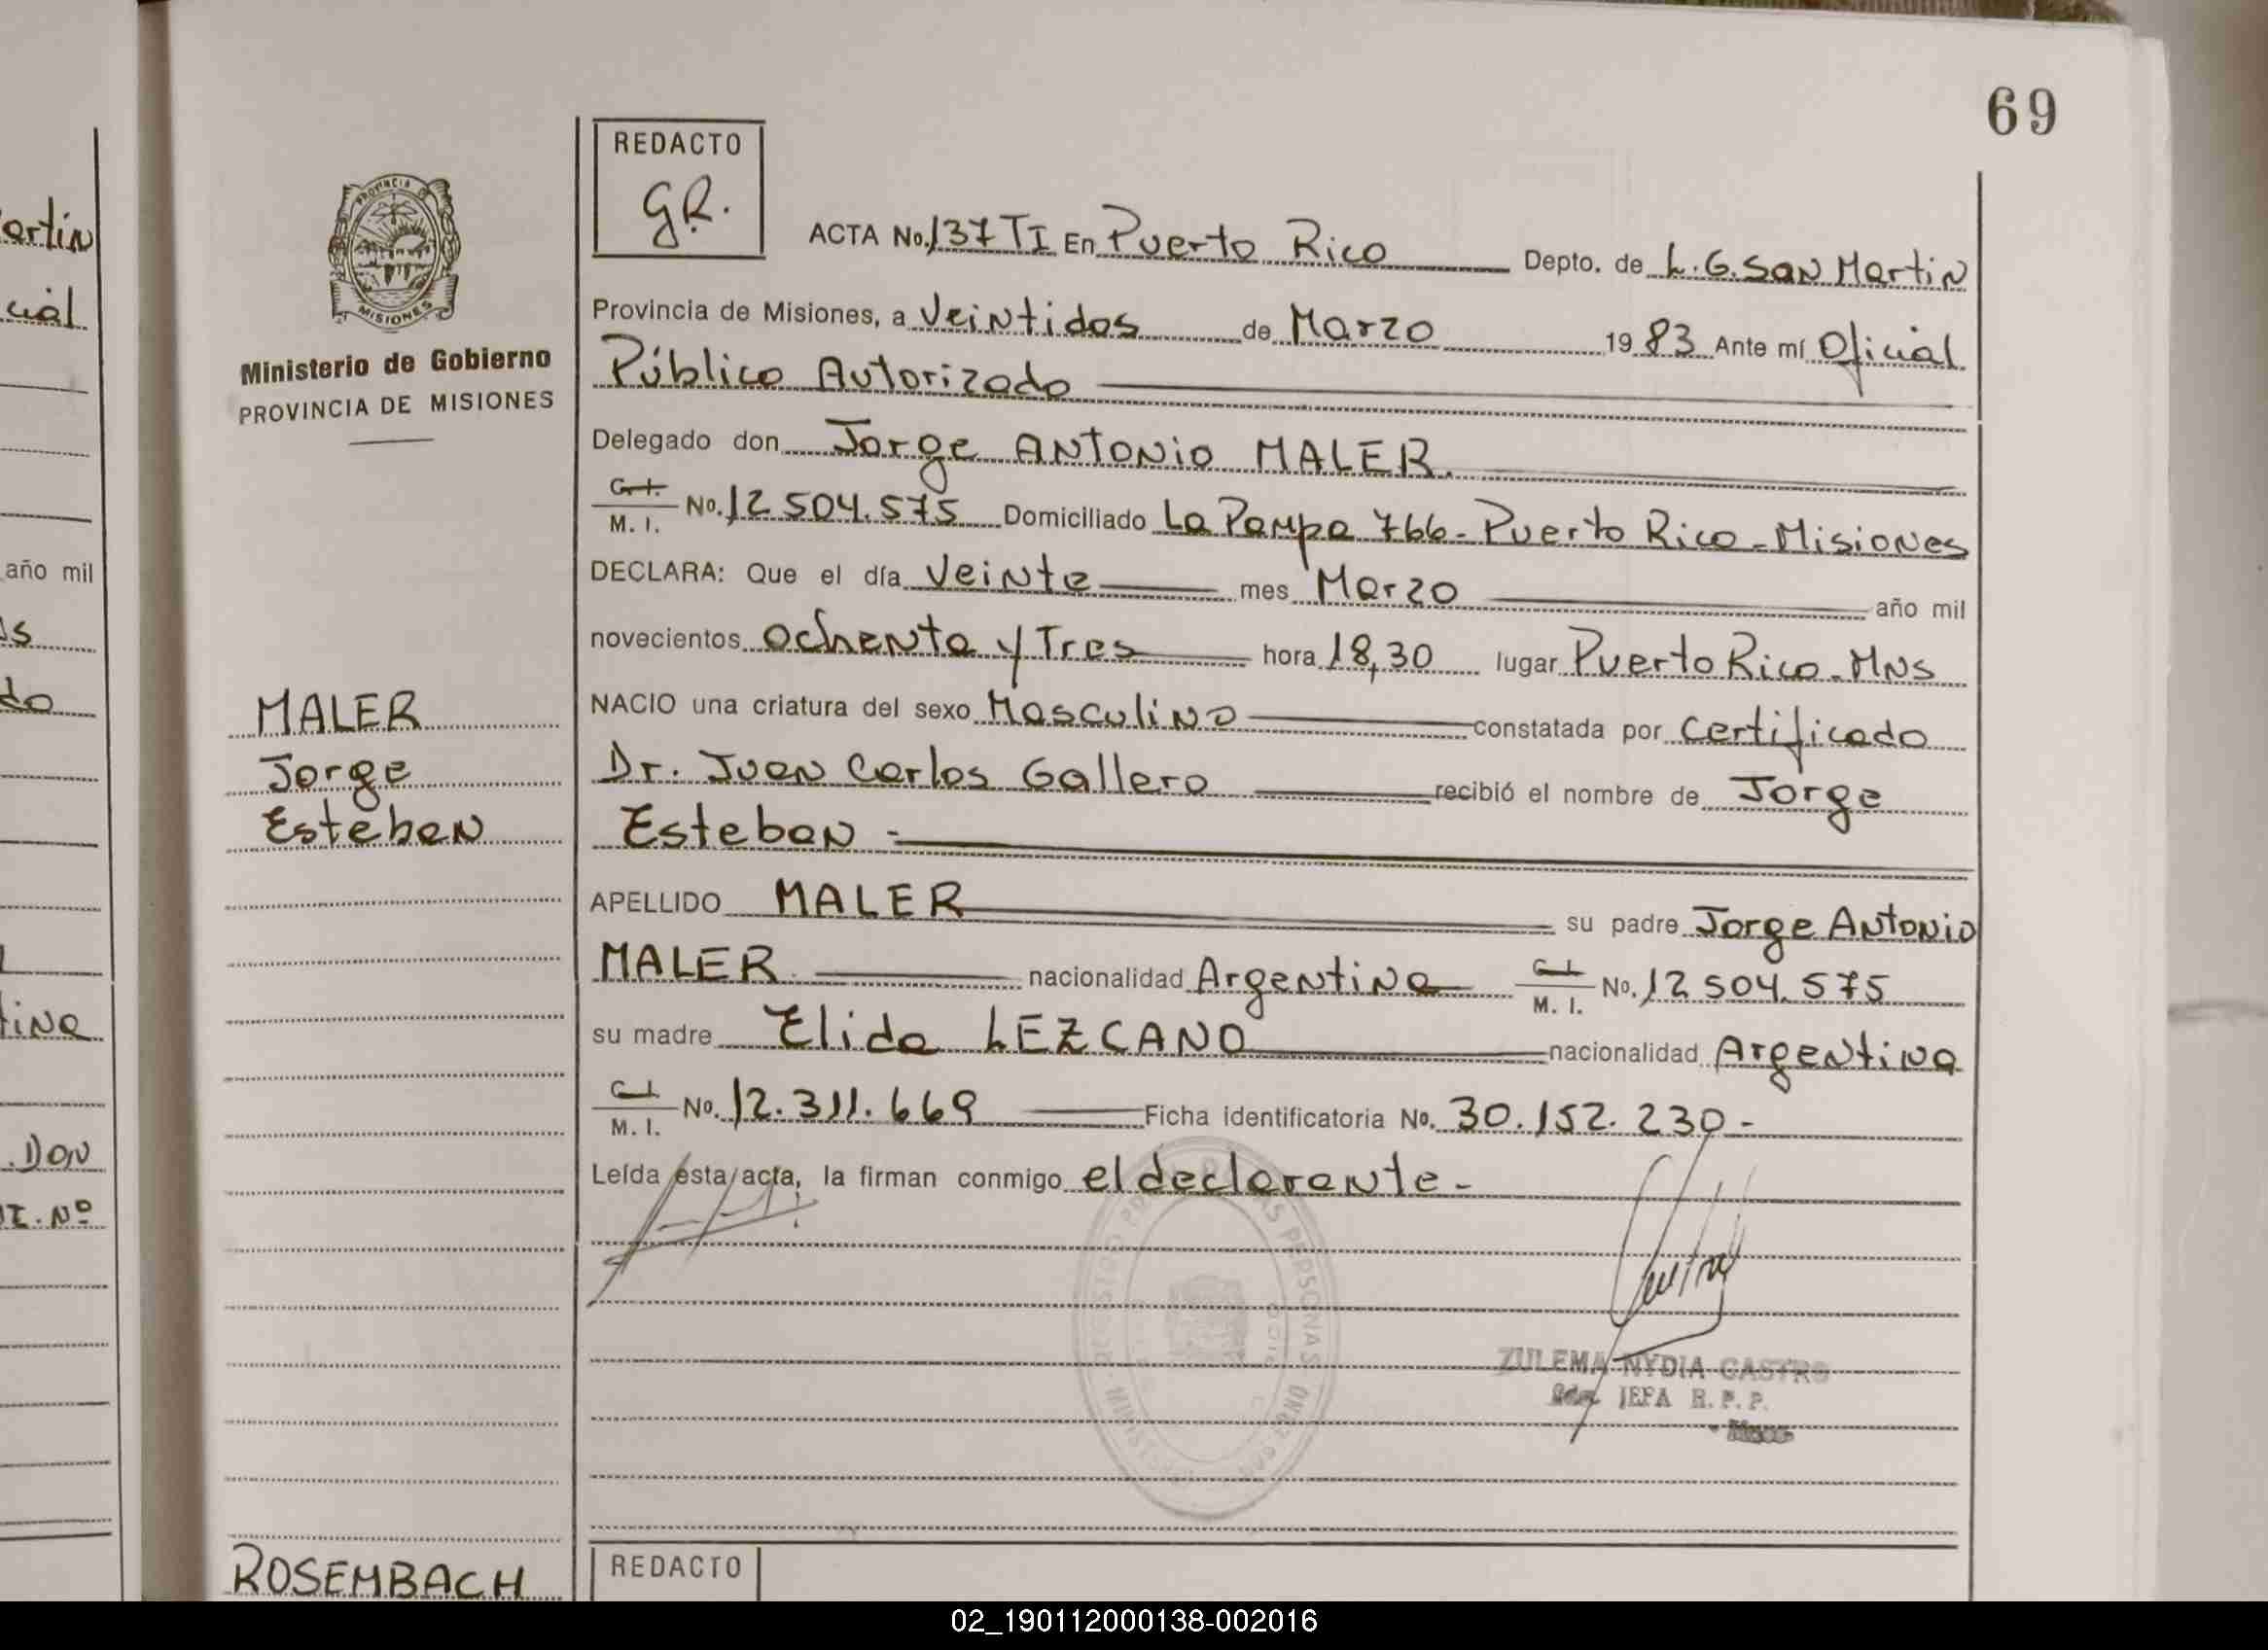 69
REDACTO
G.R.
ACTA No. 137 TI En Puerto Rico Depto. de L. G. SAN MartiN
Provincia de Misiones, a VeiNtidos de Marzo 1983 Ante mí Oficial
Público Autorizado
Delegado don Jorge ANTONio MALER.
C. I. M. I. No. 12 504.575 Domiciliado La Pampa 766 - Puerto Rico - MisioNes
DECLARA: Que el día VeiNte mes Marzo año mil
novecientos OcheNta y Tres hora 18,30 lugar Puerto Rico - MNS
NACIO una criatura del sexo MasculiNo constatada por certificado
Dr. JuaN Carlos Gallero recibió el nombre de Jorge
EstebaN -
APELLIDO MALER su padre Jorge ANtoNio
MALER. nacionalidad ArgeNtiNa C. I. M. I. No. 12 504.575
su madre Elida LEZCANO nacionalidad ArgeNtiNa
C. I. M. I. No. 12.311.669 Ficha identificatoria No. 30.152.230 -
Leída esta acta, la firman conmigo el declaraNte -
ZULEMA NYDIA CASTRO
JEFA R. P. P.
PROVINCIA DE
MISIONES
Ministerio de Gobierno
PROVINCIA DE MISIONES
MALER
Jorge
EstebaN
ROSEMBACH
REDACTO
artiN
cial
año mil
do
tiNa
. DON
I. Nº
02_190112000138-002016